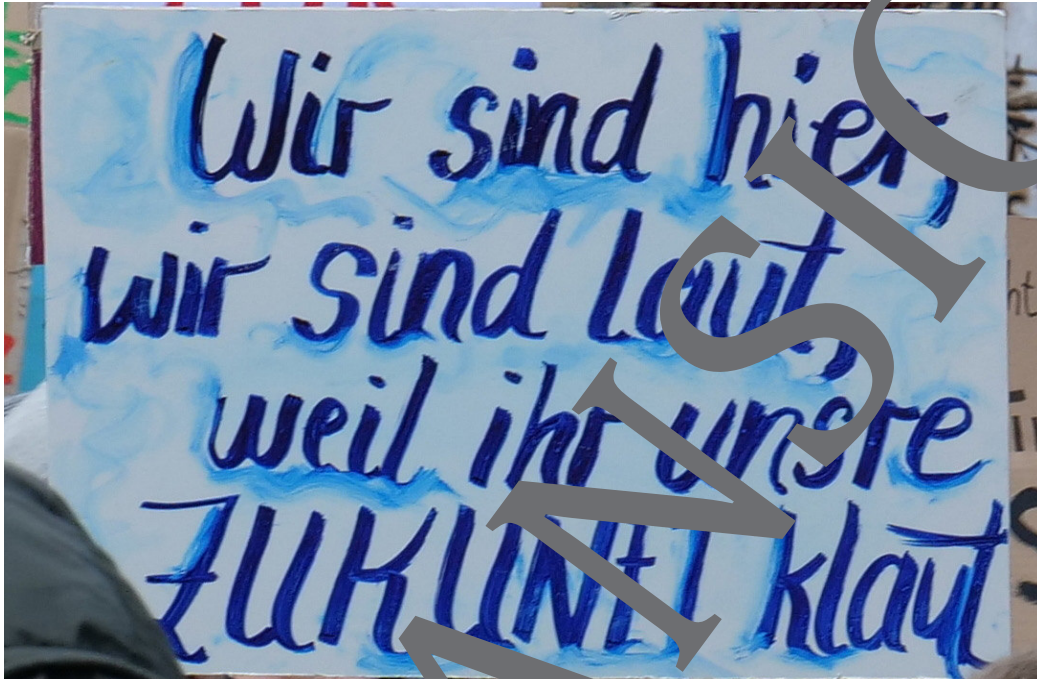 Wir sind hier,
wir sind laut,
weil ihr unsre
ZUKUNFT klaut